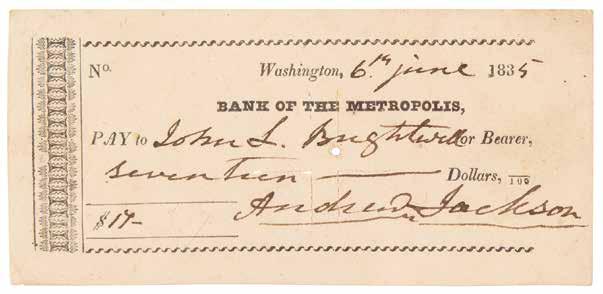 No. Washington, 6th june 1835
BANK OF THE METROPOLIS,
PAY to John L. Brightwell or Bearer,
seventeen Dollars, /100
$17- Andrew Jackson